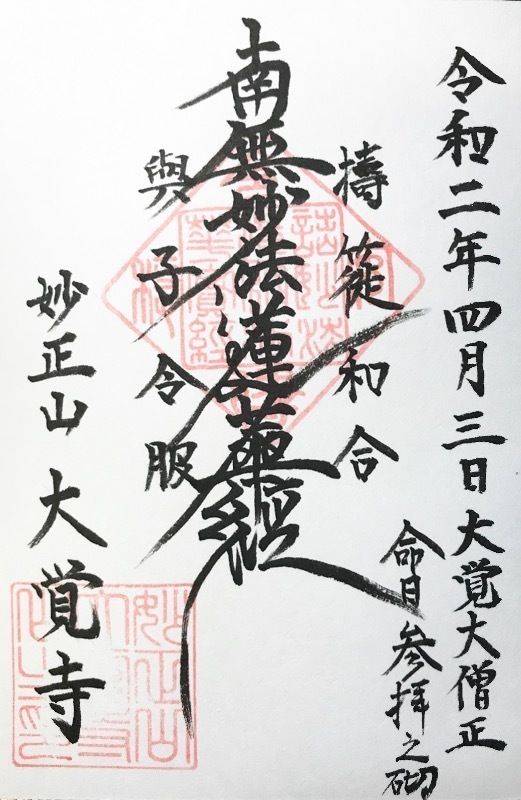 令和二年四月三日大覚大僧正
命日参拝之砌
擣簁和合
南無妙法蓮華經
與子令服
妙正山大覚寺